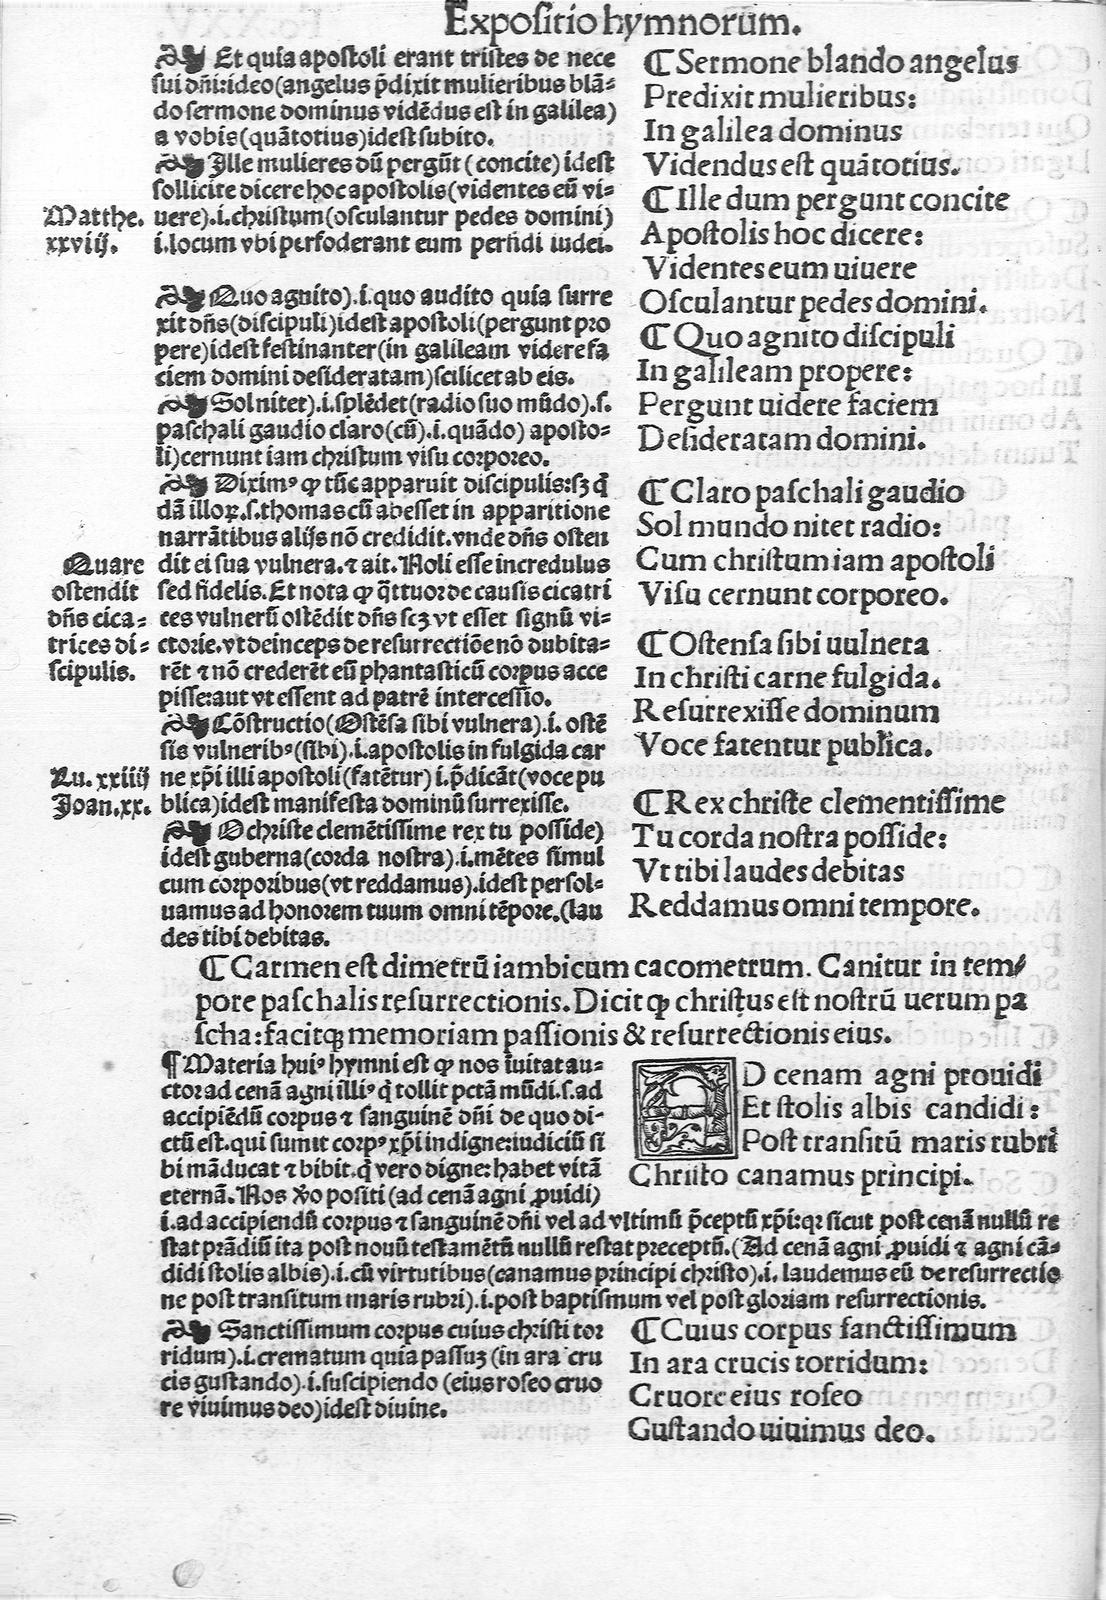 Expositio hymnorum.
Et quia apostoli erant tristes de nece
sui dñi: ideo (angelus p̄dixit mulieribus blā-
do sermone dominus vidēdus est in galilea)
a vobis (quātotius) idest subito.
Ille mulieres dū pergūt (concite) idest
sollicite dicere hoc apostolis (videntes eū vi-
uere) .i. christum (osculantur pedes domini)
.i. locum vbi perfoderant eum perfidi iudei.
Matthe.
xxviij.
Quo agnito) .i. quo audito quia surre
xit dñs (discipuli) idest apostoli (pergunt pro
pere) idest festinanter (in galileam videre fa
ciem domini desideratam) scilicet ab eis.
Sol nitet) .i. splēdet (radio suo mūdo) .s.
paschali gaudio claro (cū) .i. quādo) aposto-
li) cernunt iam christum visu corporeo.
Diximꝰ ꝙ tūc apparuit discipulis: sꝫ q̄
dā illoꝝ .s. thomas cū abesset in apparitione
narrātibus alijs nō credidit. vnde dñs osten
dit ei sua vulnera. ⁊ ait. Noli esse incredulus
sed fidelis. Et nota ꝙ q̄ttuor de causis cicatri
ces vulnerū ostēdit dñs scꝫ vt esset signū vi-
ctorie. vt deinceps de resurrectiōe nō dubita-
rēt ⁊ nō crederēt eū phantasticū corpus acce
pisse: aut vt essent ad patrē intercessio.
Quare
ostendit
dñs cica-
trices di-
scipulis.
Cōstructio (Ostēsa sibi vulnera) .i. ostē
sis vulneribꝰ (sibi) .i. apostolis in fulgida car
ne xp̄i illi apostoli (fatētur) .i. p̄dicāt (voce pu
blica) idest manifesta dominū surrexisse.
Lu. xxiiij
Joan. xx.
O christe clemētissime rex tu posside)
idest guberna (corda nostra) .i. mētes simul
cum corporibus (vt reddamus) .idest persol-
uamus ad honorem tuum omni tēpore. (lau
des tibi debitas.
¶ Sermone blando angelus
Predixit mulieribus:
In galilea dominus
Videndus est quātotius.
¶ Ille dum pergunt concite
Apostolis hoc dicere:
Videntes eum uiuere
Osculantur pedes domini.
¶ Quo agnito discipuli
In galileam propere:
Pergunt uidere faciem
Desideratam domini.
¶ Claro paschali gaudio
Sol mundo nitet radio:
Cum christum iam apostoli
Visu cernunt corporeo.
¶ Ostensa sibi uulnera
In christi carne fulgida.
Resurrexisse dominum
Voce fatentur publica.
¶ Rex christe clementissime
Tu corda nostra posside:
Vt tibi laudes debitas
Reddamus omni tempore.
¶ Carmen est dimetrū iambicum cacometrum. Canitur in tem-
pore paschalis resurrectionis. Dicit ꝙ christus est nostrū uerum pa
scha: facitqꝫ memoriam passionis & resurrectionis eius.
¶ Materia huiꝰ hymni est ꝙ nos inuitat au-
ctor ad cenā agni illiꝰ q̄ tollit pctā mūdi .s. ad
accipiēdū corpus ⁊ sanguinē dñi de quo di-
ctū est. qui sumit corpꝰ xp̄i indigne: iudiciū si
bi māducat ⁊ bibit. q̄ vero digne: habet vitā
eternā. Nos v̄o positi (ad cenā agni ꝓuidi)
AD cenam agni prouidi
Et stolis albis candidi:
Post transitū maris rubri
Christo canamus principi.
.i. ad accipiendū corpus ⁊ sanguinē dñi vel ad vltimū p̄ceptū xp̄i: qꝛ sicut post cenā nullū re
stat prādiū ita post nouū testamētū nullū restat preceptū. (Ad cenā agni ꝓuidi ⁊ agni cā-
didi stolis albis) .i. cū virtutibus (canamus principi christo) .i. laudemus eū de resurrectio
ne post transitum maris rubri) .i. post baptismum vel post gloriam resurrectionis.
Sanctissimum corpus cuius christi tor
ridum) .i. crematum quia passuꝫ (in ara cru
cis gustando) .i. suscipiendo (eius roseo cruo
re viuimus deo) idest diuine.
¶ Cuius corpus sanctissimum
In ara crucis torridum:
Cruore eius roseo
Gustando uiuimus deo.